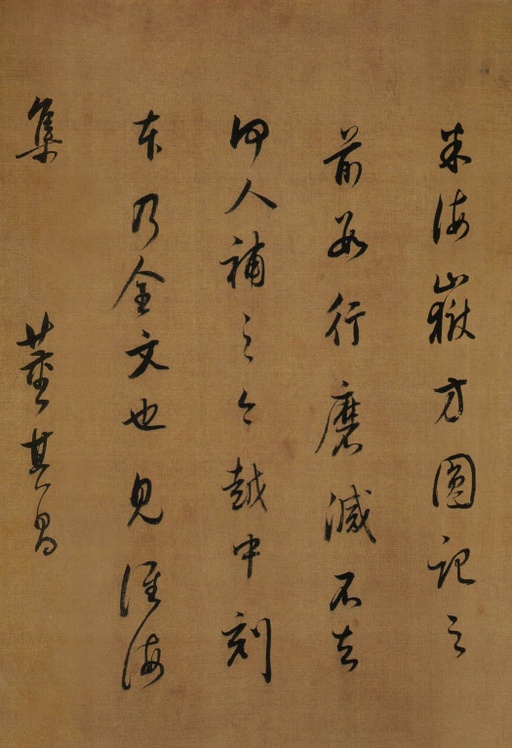 米海嶽方圓記之
前數行磨滅不知
何人補之今越中刻
本乃全文也見淮海
集 董其昌